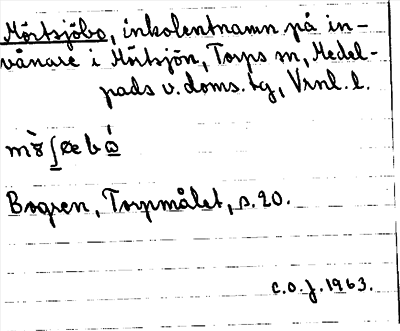 Mörtsjöbo, inkolentnamn på in-
vånare i Mörtsjön, Torps sn, Medel-
pads v. doms. tg, Vrnl. l.
Bogren, Torpmålet, s. 20.
C.O.J. 1963.